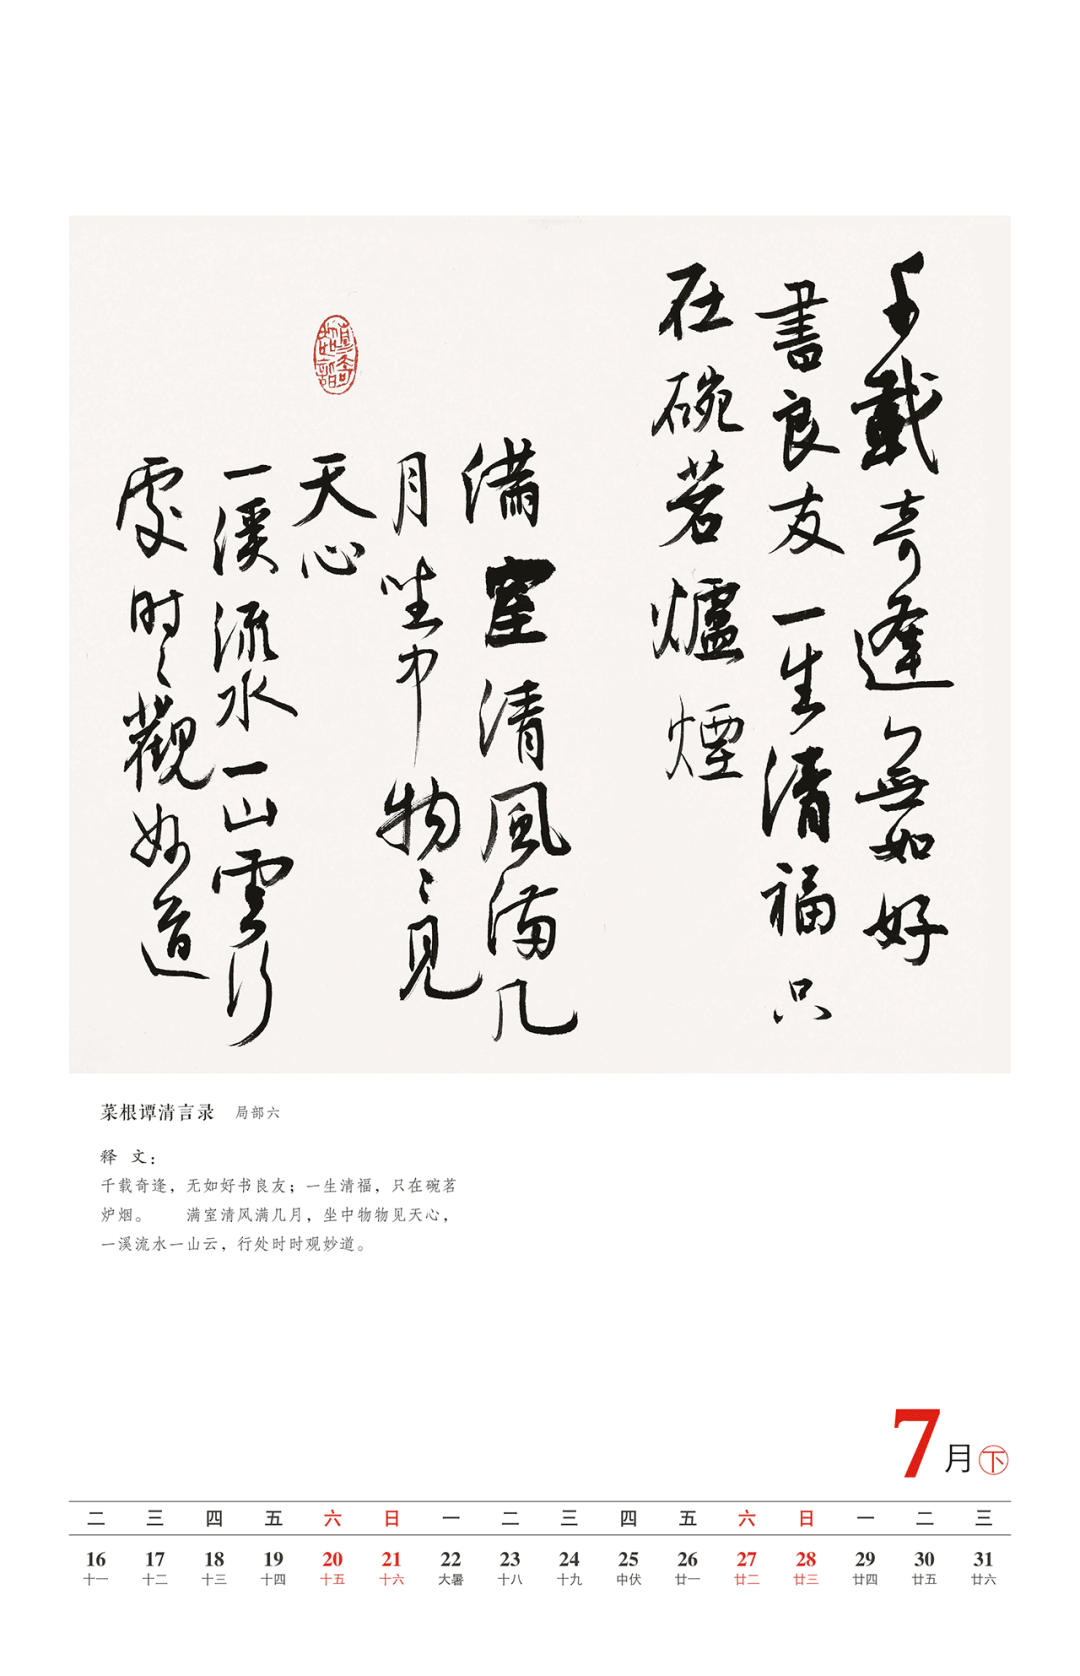 千載奇逢無如好
書良友一生清福只
在碗茗爐煙
满室清風满几
月坐中物〻見
天心
一溪流水一山雲行
處时〻觀妙道
菜根谭清言录 局部六
释 文：
千载奇逢，无如好书良友；一生清福，只在碗茗
炉烟。 满室清风满几月，坐中物物见天心，
一溪流水一山云，行处时时观妙道。
7月下
二 三 四 五 六 日 一 二 三 四 五 六 日 一 二 三
16 17 18 19 20 21 22 23 24 25 26 27 28 29 30 31
十一 十二 十三 十四 十五 十六 大暑 十八 十九 中伏 廿一 廿二 廿三 廿四 廿五 廿六